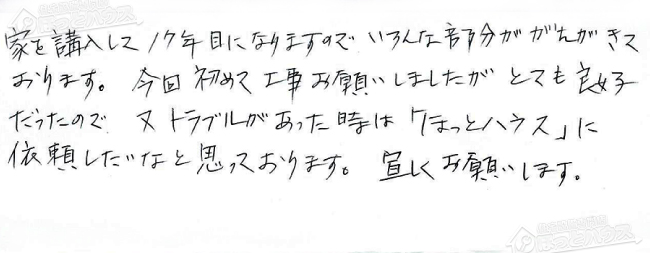 家を講入して17年目になりますので いろんな部分ががたがきて
おります。今回初めて工事お願いしましたが とても良好
だったので 又トラブルがあった時は「ほっとハウス」に
依頼したいなと思っております。宜しくお願いします。